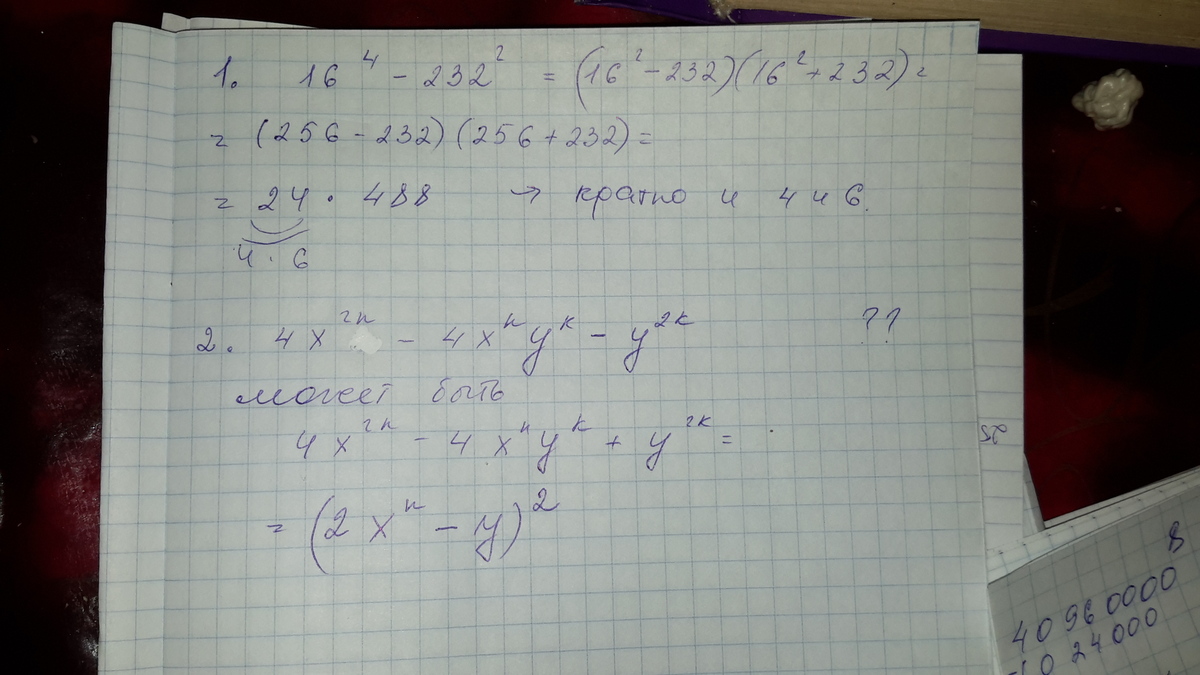 1. 16⁴ - 232² = (16² - 232)(16² + 232) =
= (256 - 232)(256 + 232) =
= 24 · 488 → кратно и 4 и 6.
4 · 6
2. 4x²ⁿ - 4xⁿyᵏ - y²ᵏ ??
может быть
4x²ⁿ - 4xⁿyᵏ + y²ᵏ =
= (2xⁿ - y)²
25
8
40960000
1024000